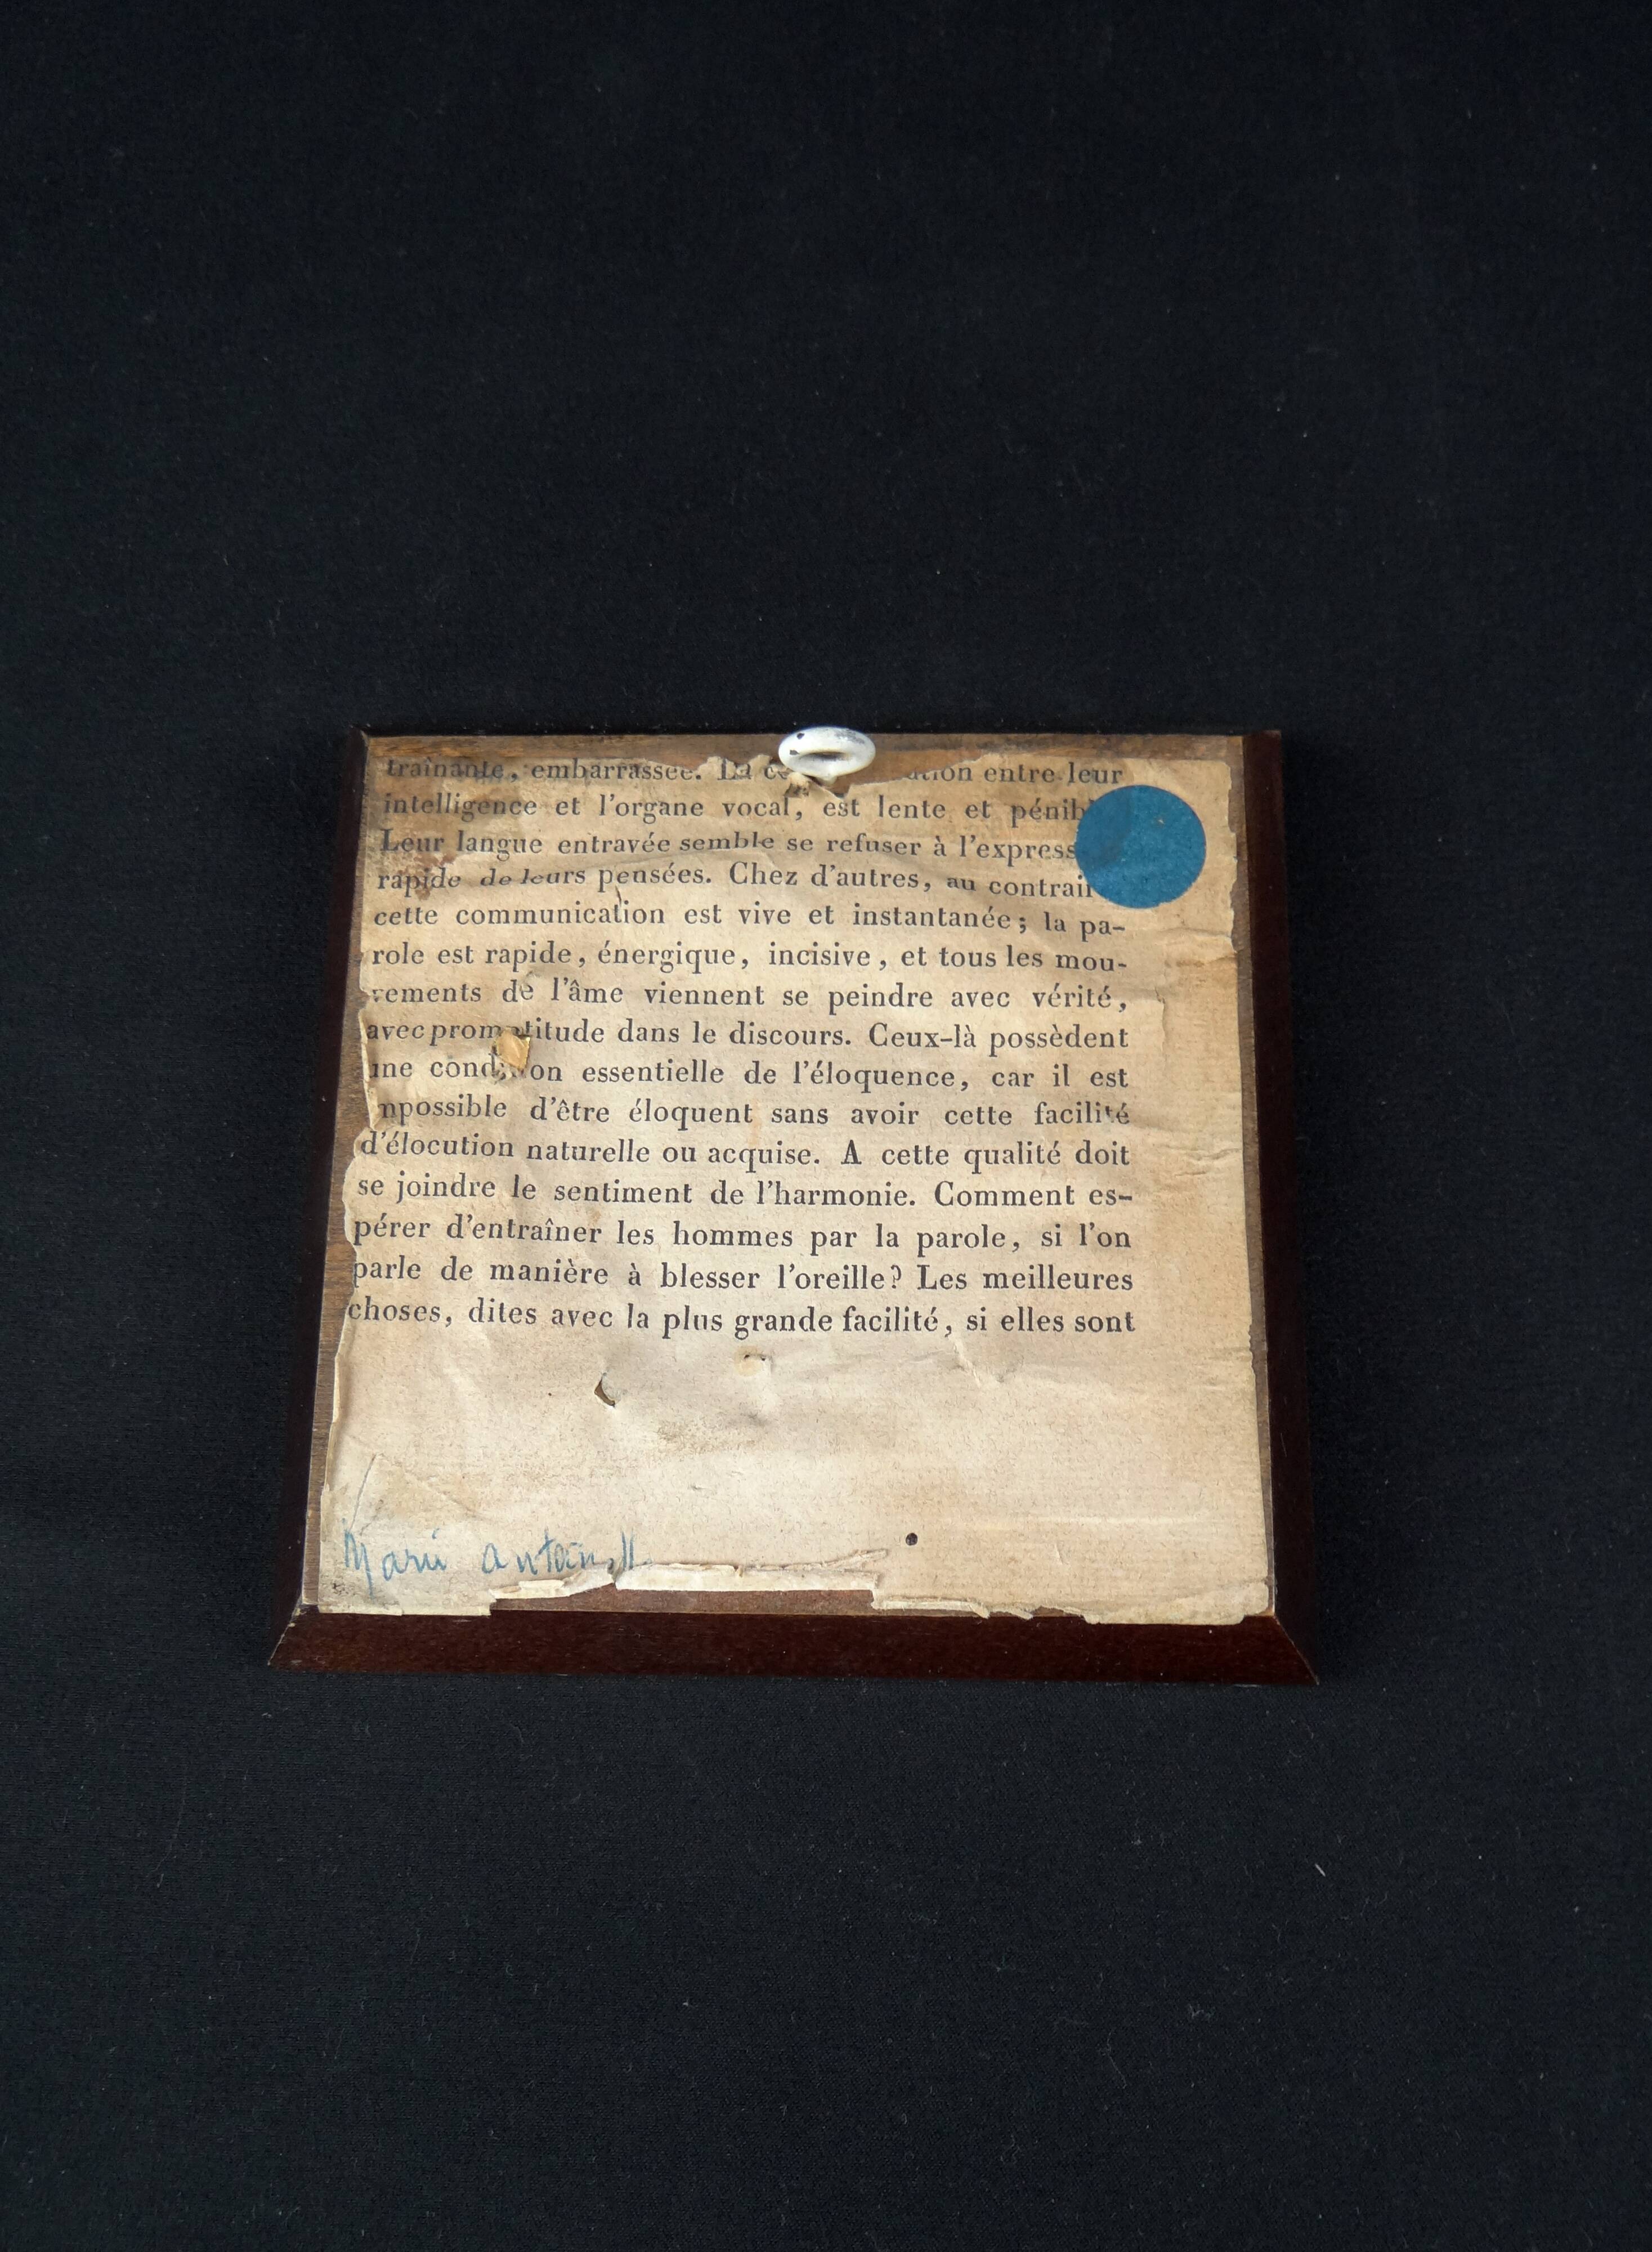 traînante, embarrassée. La entre leur
intelligence et l'organe vocal, est lente et
Leur langue entravée semble se refuser à
rapide de leurs pensées. Chez d'autres, au
cette communication est vive et instantanée; la pa-
role est rapide, énergique, incisive, et tous les mou-
vements de l'âme viennent se peindre avec vérité,
avec promptitude dans le discours. Ceux-là possèdent
une condition essentielle de l'éloquence, car il est
mpossible d'être éloquent sans avoir cette facilité
d'élocution naturelle ou acquise. A cette qualité doit
se joindre le sentiment de l'harmonie. Comment es-
pérer d'entraîner les hommes par la parole, si l'on
parle de manière à blesser l'oreille? Les meilleures
choses, dites avec la plus grande facilité, si elles sont
Marie Antoinett